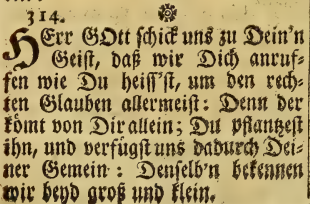 314.
HErr GOtt schick uns zu Dein'n
Geist, daß wir Dich anruf-
fen wie Du heiss'st, um den rech-
ten Glauben allermeist: Denn der
kömt von Dir allein; Du pflantzest
ihn, und verfügst uns dadurch Dei-
ner Gemein: Denselb'n bekennen
wir beyd groß und klein.